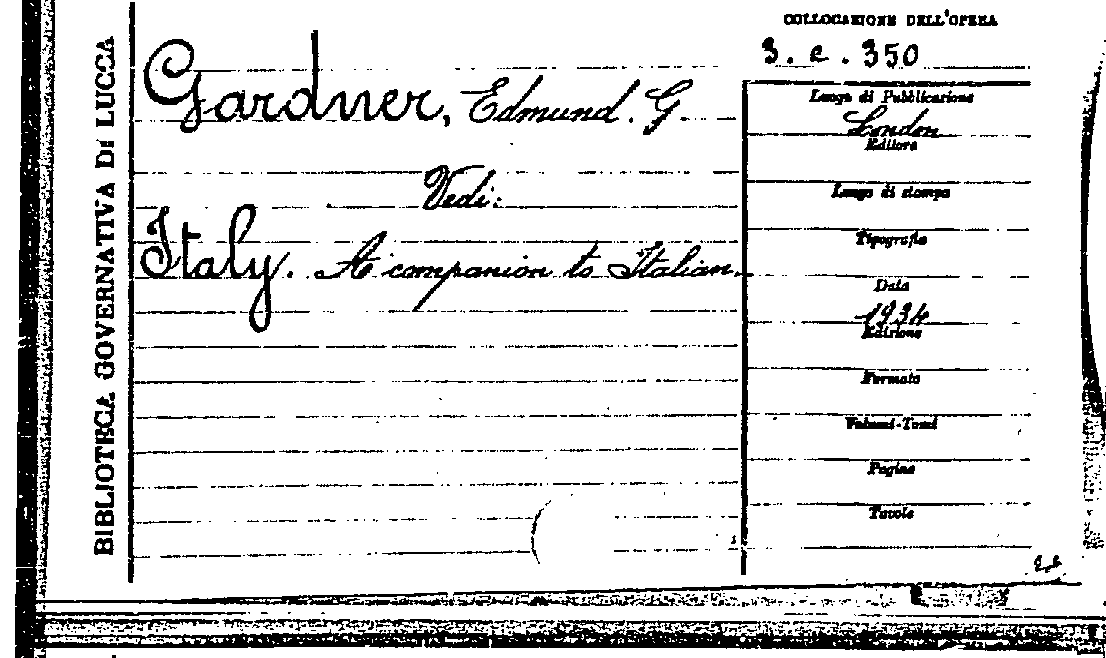 BIBLIOTECA GOVERNATIVA DI LUCCA
COLLOCAZIONE DELL'OPERA
3. c. 350
Gardner, Edmund. G.
Vedi:
Italy. A companion to Italian.
Luogo di Pubblicazione
London
Editore
Luogo di stampa
Tipografia
Data
1934
Edizione
Formato
Volumi-Tomi
Pagine
Tavole